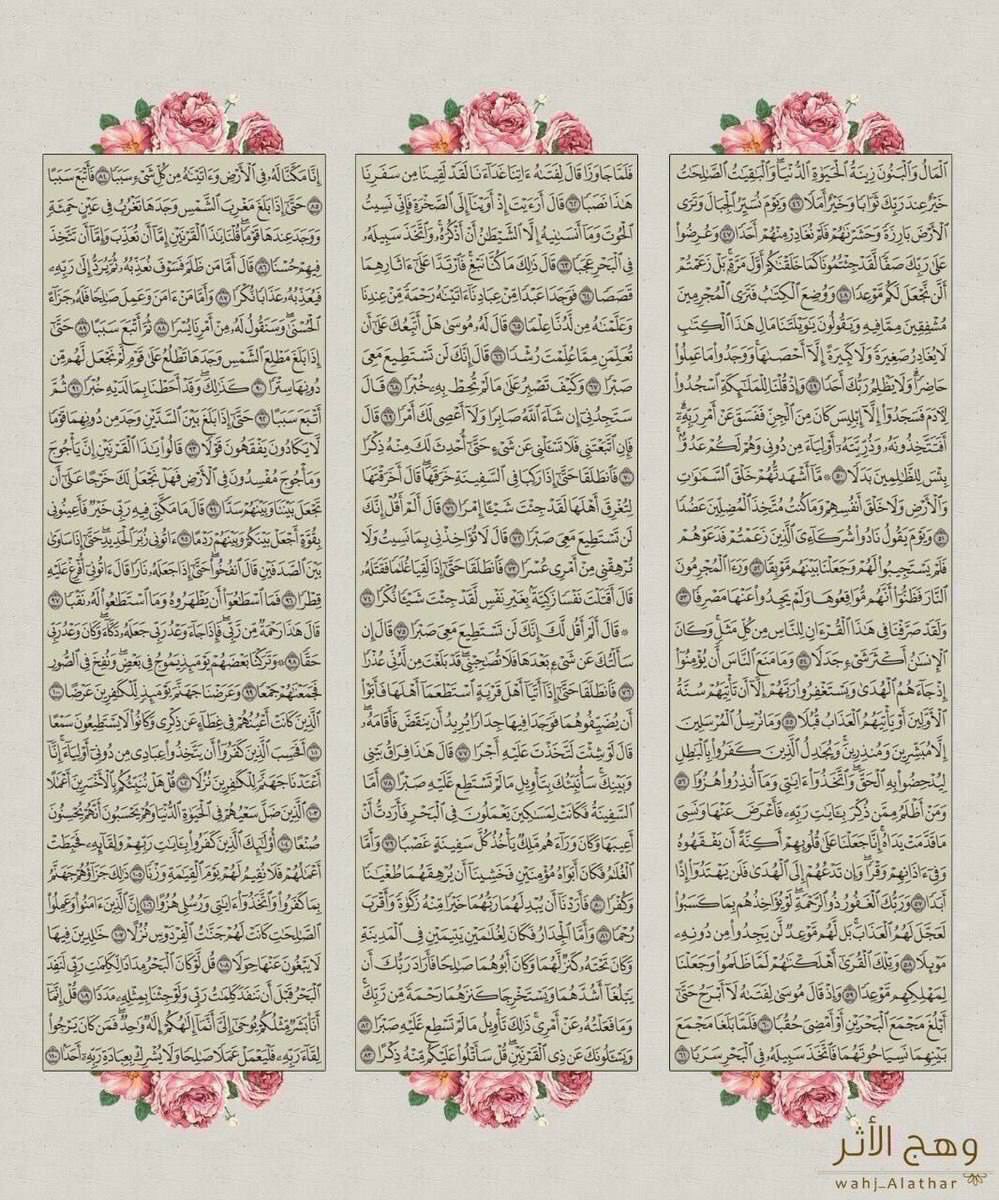 ٱلمال وٱلبنون زينة ٱلحيوٰة ٱلدنيا وٱلبٰقيٰت ٱلصٰلحٰت
خير عند ربك ثوابا وخير أملا ٤٦ ويوم نسير ٱلجبال وترى
ٱلأرض بارزة وحشرنٰهم فلم نغادر منهم أحدا ٤٧ وعرضوا
على ربك صفا لقد جئتمونا كما خلقنٰكم أول مرة بل زعمتم
ألن نجعل لكم موعدا ٤٨ ووضع ٱلكتٰب فترى ٱلمجرمين
مشفقين مما فيه ويقولون يٰويلتنا مال هٰذا ٱلكتٰب
لا يغادر صغيرة ولا كبيرة إلا أحصىٰها ووجدوا ما عملوا
حاضرا ولا يظلم ربك أحدا ٤٩ وإذ قلنا للملٰئكة ٱسجدوا
لءادم فسجدوا إلا إبليس كان من ٱلجن ففسق عن أمر ربه
أفتتخذونه وذريته أولياء من دوني وهم لكم عدو
بئس للظٰلمين بدلا ٥٠ ۞ ما أشهدتهم خلق ٱلسمٰوٰت
وٱلأرض ولا خلق أنفسهم وما كنت متخذ ٱلمضلين عضدا
٥١ ويوم يقول نادوا شركاءي ٱلذين زعمتم فدعوهم
فلم يستجيبوا لهم وجعلنا بينهم موبقا ٥٢ ورءا ٱلمجرمون
ٱلنار فظنوا أنهم مواقعوها ولم يجدوا عنها مصرفا ٥٣
ولقد صرفنا في هٰذا ٱلقرءان للناس من كل مثل وكان
ٱلإنسٰن أكثر شيء جدلا ٥٤ وما منع ٱلناس أن يؤمنوا
إذ جاءهم ٱلهدى ويستغفروا ربهم إلا أن تأتيهم سنة
ٱلأولين أو يأتيهم ٱلعذاب قبلا ٥٥ وما نرسل ٱلمرسلين
إلا مبشرين ومنذرين ويجٰدل ٱلذين كفروا بٱلبٰطل
ليدحضوا به ٱلحق وٱتخذوا ءايٰتي وما أنذروا هزوا ٥٦
ومن أظلم ممن ذكر بءايٰت ربه فأعرض عنها ونسي
ما قدمت يداه إنا جعلنا على قلوبهم أكنة أن يفقهوه
وفي ءاذانهم وقرا وإن تدعهم إلى ٱلهدى فلن يهتدوا إذا
أبدا ٥٧ وربك ٱلغفور ذو ٱلرحمة لو يؤاخذهم بما كسبوا
لعجل لهم ٱلعذاب بل لهم موعد لن يجدوا من دونه
موئلا ٥٨ وتلك ٱلقرى أهلكنٰهم لما ظلموا وجعلنا
لمهلكهم موعدا ٥٩ وإذ قال موسى لفتىٰه لا أبرح حتى
أبلغ مجمع ٱلبحرين أو أمضي حقبا ٦٠ فلما بلغا مجمع
بينهما نسيا حوتهما فٱتخذ سبيله في ٱلبحر سربا ٦١
فلما جاوزا قال لفتىٰه ءاتنا غداءنا لقد لقينا من سفرنا
هٰذا نصبا ٦٢ قال أرءيت إذ أوينا إلى ٱلصخرة فإني نسيت
ٱلحوت وما أنسىٰنيه إلا ٱلشيطٰن أن أذكره وٱتخذ سبيله
في ٱلبحر عجبا ٦٣ قال ذٰلك ما كنا نبغ فٱرتدا على ءاثارهما
قصصا ٦٤ فوجدا عبدا من عبادنا ءاتينٰه رحمة من عندنا
وعلمنٰه من لدنا علما ٦٥ قال له موسى هل أتبعك على أن
تعلمن مما علمت رشدا ٦٦ قال إنك لن تستطيع معي
صبرا ٦٧ وكيف تصبر على ما لم تحط به خبرا ٦٨ قال
ستجدني إن شاء ٱلله صابرا ولا أعصي لك أمرا ٦٩ قال
فإن ٱتبعتني فلا تسٔلني عن شيء حتى أحدث لك منه ذكرا
٧٠ فٱنطلقا حتى إذا ركبا في ٱلسفينة خرقها قال أخرقتها
لتغرق أهلها لقد جئت شئا إمرا ٧١ قال ألم أقل إنك
لن تستطيع معي صبرا ٧٢ قال لا تؤاخذني بما نسيت ولا
ترهقني من أمري عسرا ٧٣ فٱنطلقا حتى إذا لقيا غلٰما فقتله
قال أقتلت نفسا زكية بغير نفس لقد جئت شئا نكرا ٧٤
۞ قال ألم أقل لك إنك لن تستطيع معي صبرا ٧٥ قال إن
سألتك عن شيء بعدها فلا تصٰحبني قد بلغت من لدني عذرا
٧٦ فٱنطلقا حتى إذا أتيا أهل قرية ٱستطعما أهلها فأبوا
أن يضيفوهما فوجدا فيها جدارا يريد أن ينقض فأقامه
قال لو شئت لتخذت عليه أجرا ٧٧ قال هٰذا فراق بيني
وبينك سأنبئك بتأويل ما لم تستطع عليه صبرا ٧٨ أما
ٱلسفينة فكانت لمسٰكين يعملون في ٱلبحر فأردت أن
أعيبها وكان وراءهم ملك يأخذ كل سفينة غصبا ٧٩ وأما
ٱلغلٰم فكان أبواه مؤمنين فخشينا أن يرهقهما طغيٰنا
وكفرا ٨٠ فأردنا أن يبدلهما ربهما خيرا منه زكوٰة وأقرب
رحما ٨١ وأما ٱلجدار فكان لغلٰمين يتيمين في ٱلمدينة
وكان تحته كنز لهما وكان أبوهما صٰلحا فأراد ربك أن
يبلغا أشدهما ويستخرجا كنزهما رحمة من ربك
وما فعلته عن أمري ذٰلك تأويل ما لم تسطع عليه صبرا ٨٢
ويسٔلونك عن ذي ٱلقرنين قل سأتلوا عليكم منه ذكرا ٨٣
إنا مكنا له في ٱلأرض وءاتينٰه من كل شيء سببا ٨٤ فأتبع سببا
٨٥ حتى إذا بلغ مغرب ٱلشمس وجدها تغرب في عين حمئة
ووجد عندها قوما قلنا يٰذا ٱلقرنين إما أن تعذب وإما أن تتخذ
فيهم حسنا ٨٦ قال أما من ظلم فسوف نعذبه ثم يرد إلى ربه
فيعذبه عذابا نكرا ٨٧ وأما من ءامن وعمل صٰلحا فله جزاء
ٱلحسنى وسنقول له من أمرنا يسرا ٨٨ ثم أتبع سببا ٨٩ حتى
إذا بلغ مطلع ٱلشمس وجدها تطلع على قوم لم نجعل لهم من
دونها سترا ٩٠ كذٰلك وقد أحطنا بما لديه خبرا ٩١ ثم
أتبع سببا ٩٢ حتى إذا بلغ بين ٱلسدين وجد من دونهما قوما
لا يكادون يفقهون قولا ٩٣ قالوا يٰذا ٱلقرنين إن يأجوج
ومأجوج مفسدون في ٱلأرض فهل نجعل لك خرجا على أن
تجعل بيننا وبينهم سدا ٩٤ قال ما مكني فيه ربي خير فأعينوني
بقوة أجعل بينكم وبينهم ردما ٩٥ ءاتوني زبر ٱلحديد حتى إذا ساوى
بين ٱلصدفين قال ٱنفخوا حتى إذا جعله نارا قال ءاتوني أفرغ عليه
قطرا ٩٦ فما ٱسطٰعوا أن يظهروه وما ٱستطٰعوا له نقبا ٩٧
قال هٰذا رحمة من ربي فإذا جاء وعد ربي جعله دكاء وكان وعد ربي
حقا ٩٨ ۞ وتركنا بعضهم يومئذ يموج في بعض ونفخ في ٱلصور
فجمعنٰهم جمعا ٩٩ وعرضنا جهنم يومئذ للكٰفرين عرضا ١٠٠
ٱلذين كانت أعينهم في غطاء عن ذكري وكانوا لا يستطيعون سمعا
١٠١ أفحسب ٱلذين كفروا أن يتخذوا عبادي من دوني أولياء إنا
أعتدنا جهنم للكٰفرين نزلا ١٠٢ قل هل ننبئكم بٱلأخسرين أعمٰلا
١٠٣ ٱلذين ضل سعيهم في ٱلحيوٰة ٱلدنيا وهم يحسبون أنهم يحسنون
صنعا ١٠٤ أولٰئك ٱلذين كفروا بءايٰت ربهم ولقائه فحبطت
أعمٰلهم فلا نقيم لهم يوم ٱلقيٰمة وزنا ١٠٥ ذٰلك جزاؤهم جهنم
بما كفروا وٱتخذوا ءايٰتي ورسلي هزوا ١٠٦ إن ٱلذين ءامنوا وعملوا
ٱلصٰلحٰت كانت لهم جنٰت ٱلفردوس نزلا ١٠٧ خٰلدين فيها
لا يبغون عنها حولا ١٠٨ قل لو كان ٱلبحر مدادا لكلمٰت ربي لنفد
ٱلبحر قبل أن تنفد كلمٰت ربي ولو جئنا بمثله مددا ١٠٩ قل إنما
أنا بشر مثلكم يوحى إلي أنما إلٰهكم إلٰه وٰحد فمن كان يرجوا
لقاء ربه فليعمل عملا صٰلحا ولا يشرك بعبادة ربه أحدا ١١٠
وهج الأثر
wahj_Alathar